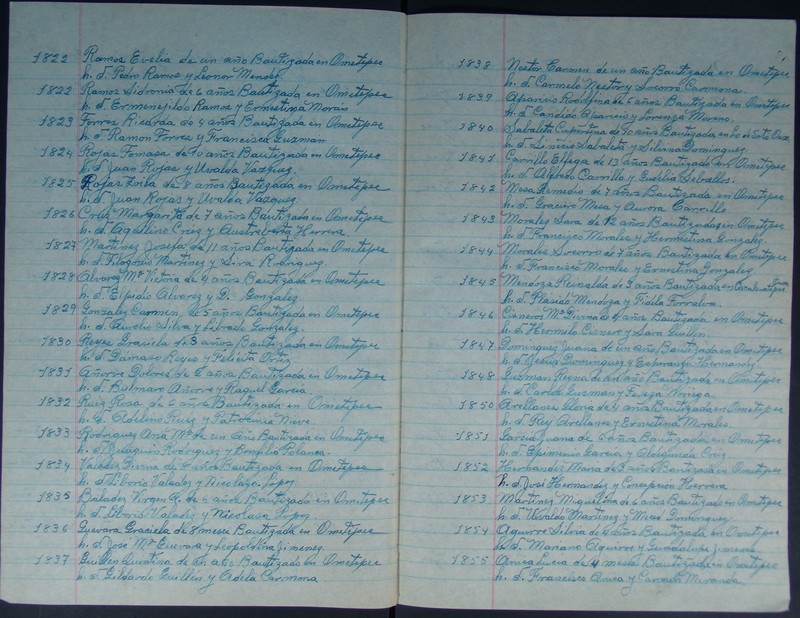 1822 Ramos Evelia de un año Bautizada en Ometepec
h. d. Pedro Ramos y Leonor Mendez
1822 Ramos Sidronia de 6 años Bautizada en Ometepec
h. d. Ermenejildo Ramos y Ernestina Morais
1823 Torres Ricarda de 4 años Bautizada en Ometepec
h. d. Ramon Torres y Francisca Guzman
1824 Rojas Tomasa de 10 años Bautizada en Ometepec
h. d. Juan Rojas y Uvalda Vazquez
1825 Rojas Zoila de 8 años Bautizada en Ometepec
h. d. Juan Rojas y Uvalda Vazquez
1826 Cruz Margarita de 7 años Bautizada en Ometepec
h. d. Cruz y Austreberta Herrera
1827 Martinez Josefa de 11 años Bautizada en Ometepec
h. d. Filogonio Martinez y
1828 Alvarez Mª Victoria de 4 años Bautizada en Ometepec
h. d. Elpidio Alvarez y Gonzalez
1829 Gonzalez Carmen de 5 años Bautizada en Ometepec
h. d. Aurelio Silva y Librada Gonzalez
1830 Reyes Graciela de 3 años Bautizada en Ometepec
h. d. Damaso Reyes y Felicita Ortiz
1831 Añorve Dolores de 6 años Bautizada en Ometepec
h. d. Bulmaro Añorve y Raquel Garcia
1832 Ruiz Rosa de años Bautizada en Ometepec
h. d. Adelino Ruiz y Patrocinia Nieve
1833 Rodriguez Ana Mª de un año Bautizada en Ometepec
h. d. Joaquin Rodriguez y Polanca
1834 Valadez de años Bautizada en Ometepec
h. d. Liborio Valadez y Nicolasa
1835 Virgen de 6 años Bautizada en Ometepec
h. d. Liborio Valadez y Nicolasa
1836 Guevara Graciela de 8 meses Bautizada en Ometepec
h. d. Jose Mª Guevara y Leopoldina Jimenez
1837 Guillen Quintina de un año Bautizada en Ometepec
h. d. Gildardo Guillen y Adela Carmona
1838 Nestor Carmen de un año Bautizada en Ometepec
h. d. Carmelo Nestor y Socorro Carmona
1839 Aparicio de 6 años Bautizada en Ometepec
h. d. Candido Aparicio y Lorenza Moreno
1840 de 10 años Bautizada en
h. d. y Silvina Dominguez
1841 Carrillo Elfega de 13 años Bautizada en Ometepec
h. d. Alfonso Carrillo y Evelia
1842 Mesa Remedio de 7 años Bautizada en Ometepec
h. d. Mesa y Aurora Carrillo
1843 Morales Sara de 12 años Bautizada en Ometepec
h. d. Francisco Morales y Hermestina Gonzalez
1844 Morales Socorro de 7 años Bautizada en Ometepec
h. d. Francisco Morales y Ernestina Gonzalez
1845 Mendoza Reinalda de 3 años Bautizada en
h. d. Placido Mendoza y Fidela Torralva
1846 Cisneros Mª de 4 años Bautizada en Ometepec
h. d. Hermilo Cisneros y Sara Guillen
1847 Dominguez Juana de un año Bautizada en Ometepec
h. d. Jesus Dominguez y Esperanza Hernandez
1848 Guzman Reyna de un año Bautizada en Ometepec
h. d. Carlos Guzman y Noriega
1850 Arellanes Elena de 4 años Bautizada en Ometepec
h. d. Rey Arellanes y Ernestina Morales
1851 Garcia Juana de 6 años Bautizada en Ometepec
h. d. Epimenio Garcia y Aldegunda Cruz
1852 Hernandez Maria de 3 años Bautizada en Ometepec
h. d. José Hernandez y Concepcion Herrera
1853 Martinez Miguelina de 6 años Bautizada en Ometepec
h. d. Uvaldo Martinez y Dominguez
1854 Aguirre Silvia de 4 años Bautizada en Ometepec
h. d. Mariano Aguirre y Guadalupe Jimenez
1855 de 4 meses Bautizada en Ometepec
h. d. Francisco y Carmela Miranda